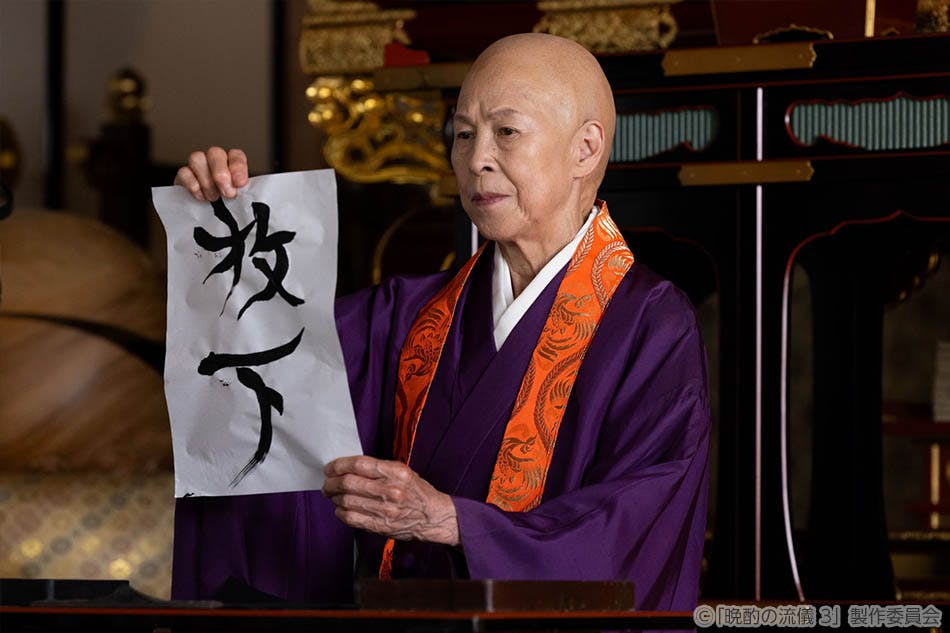 放下
©「晩酌の流儀 3」製作委員会